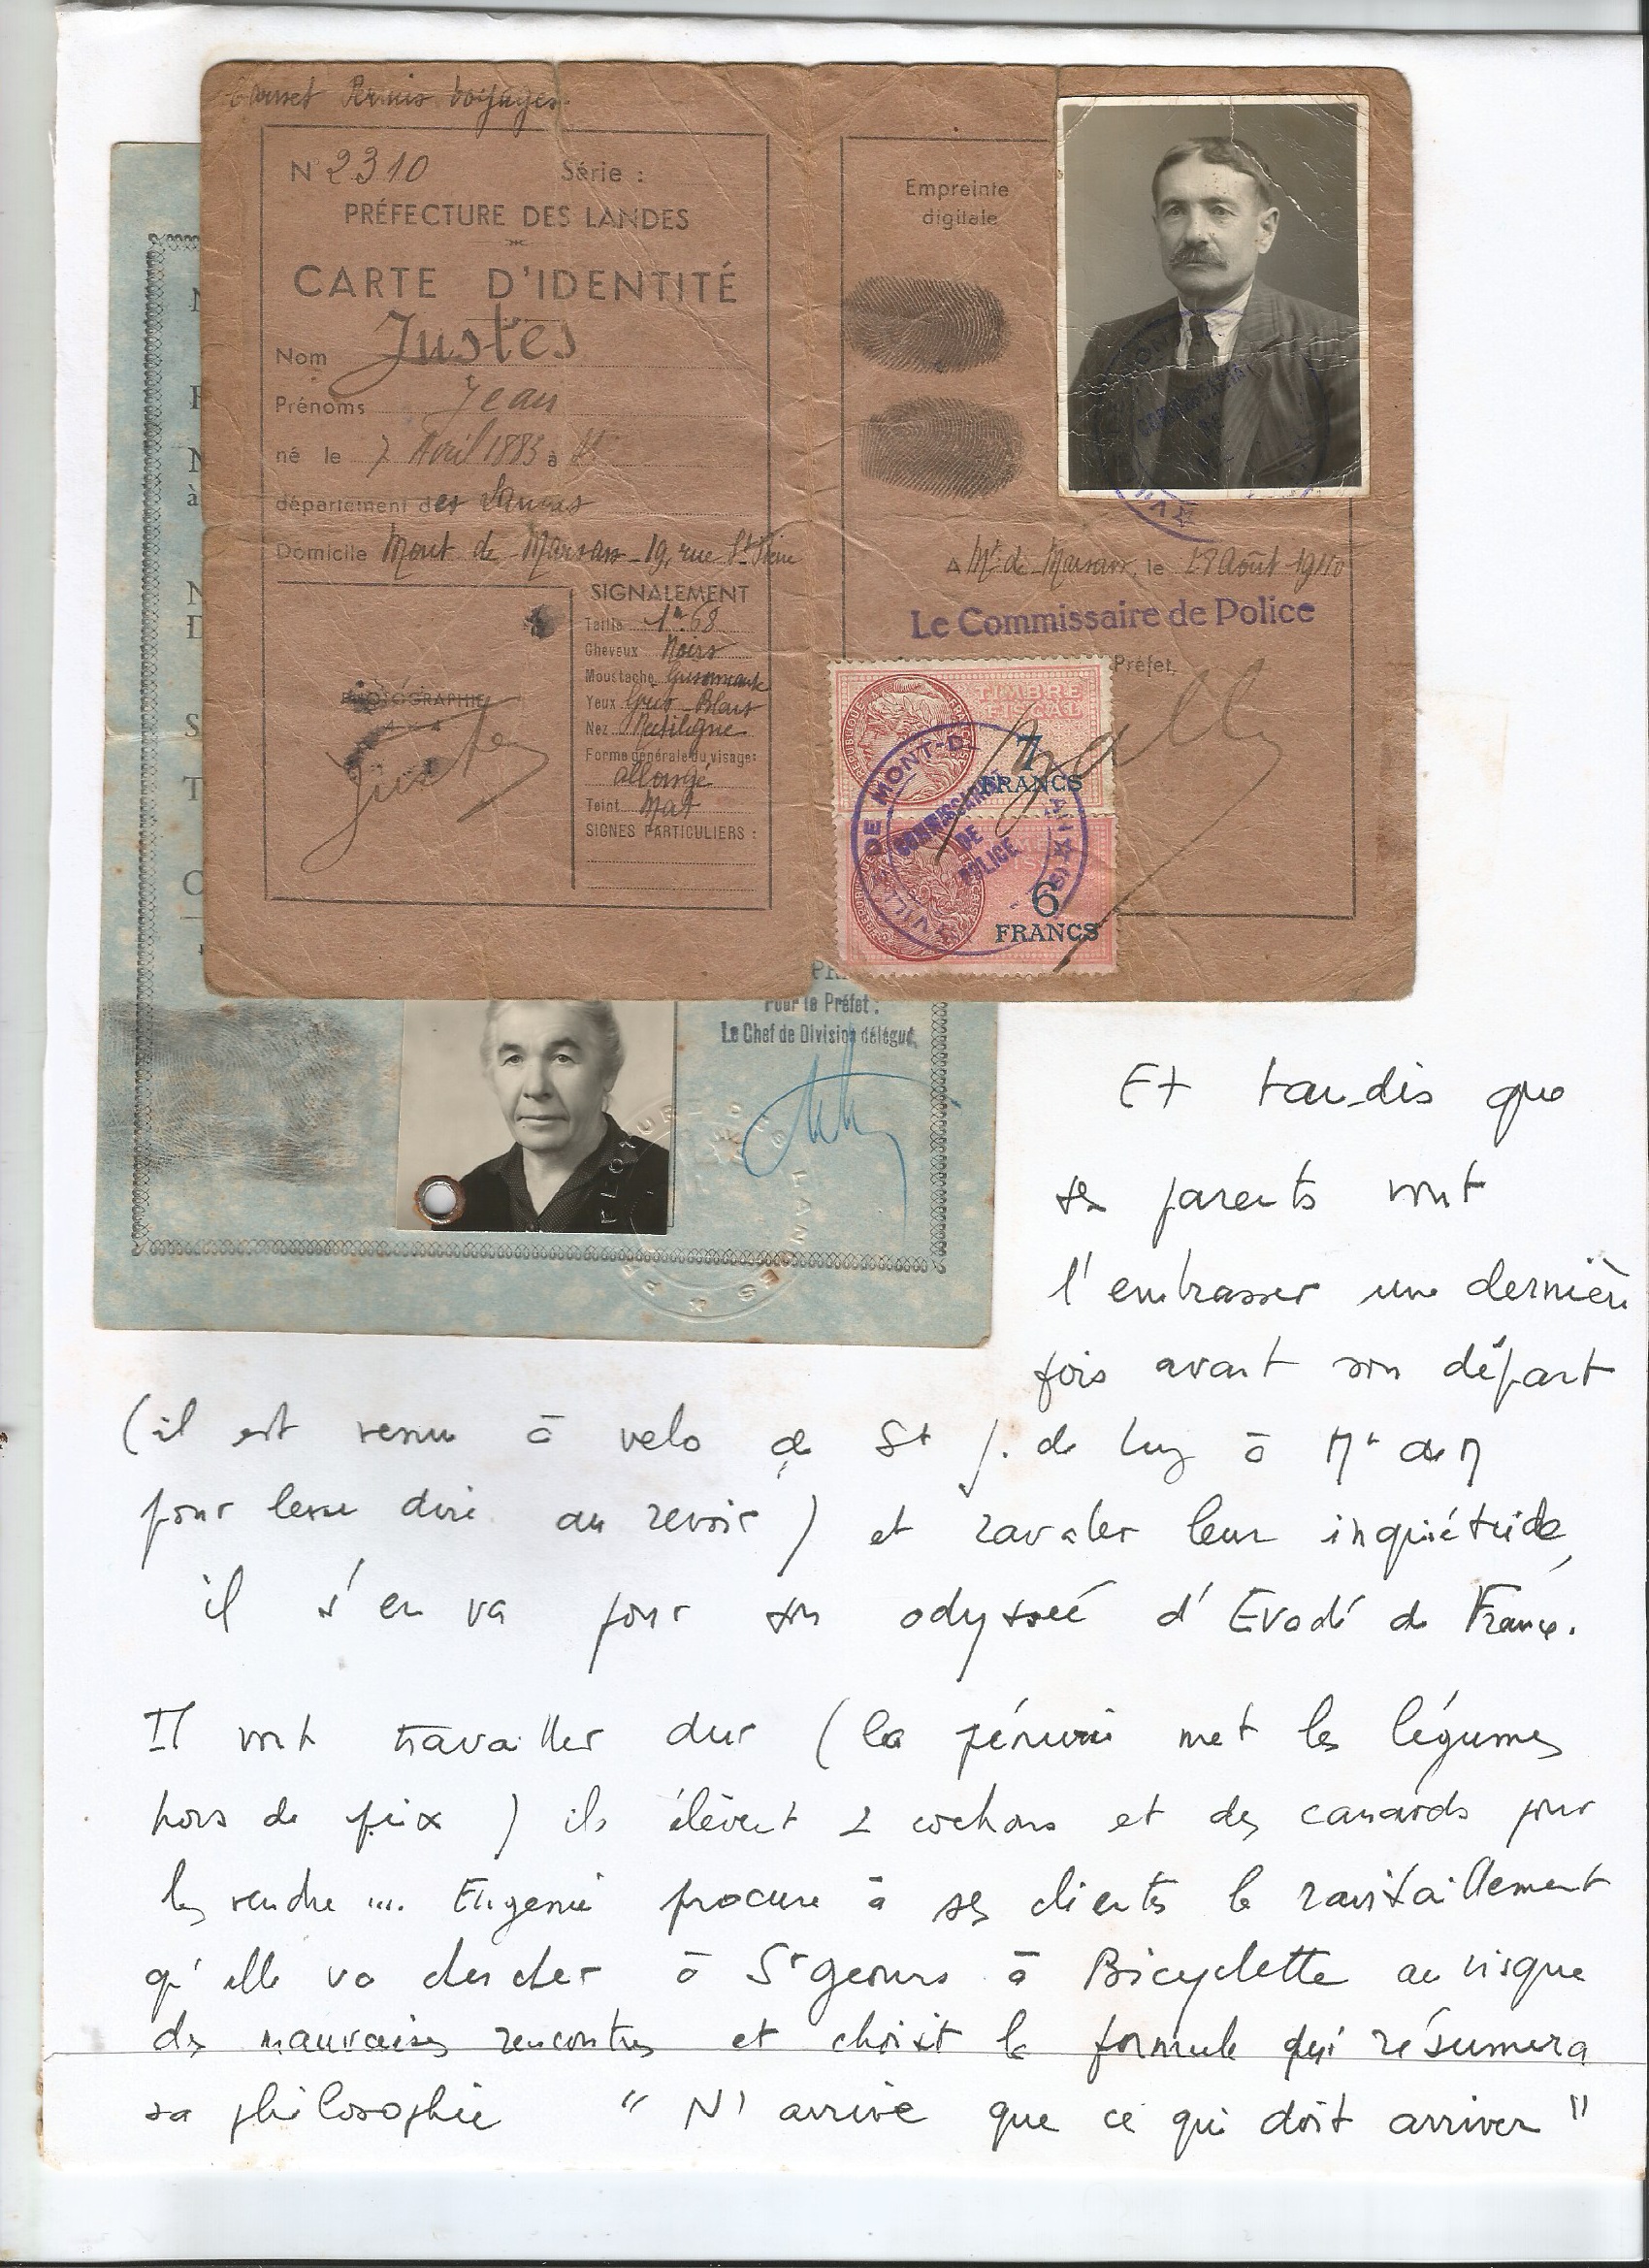 Carnet Permis voyages
N° 2310 Série :
PRÉFECTURE DES LANDES
CARTE D'IDENTITÉ
Nom Justes
Prénoms Jean
né le 7 Avril 1883 à
département des Landes
Domicile Mont de Marsan 19, rue St
SIGNALEMENT
Taille 1m68
Cheveux Noirs
Moustache Grisonnante
Yeux Gris Bleus
Nez Rectiligne
Forme générale du visage:
allongé
Teint Mat
SIGNES PARTICULIERS :
PHOTOGRAPHIE
4 x 4
Justes
Empreinte
digitale
A Mt de Marsan, le 28 Août 1940
Le Commissaire de Police
Préfet,
TIMBRE
FISCAL
7
FRANCS
6
FRANCS
VILLE DE MONT-DE
COMMISSARIAT
DE
POLICE
Pour le Préfet :
Le Chef de Division délégué,
Et tandis que
ses parents vont
l'embrasser une dernière
fois avant son départ
(il est venu à velo de St J. de Luz à Mt de M
pour leur dire au revoir) et ravaler leur inquiétude,
il s'en va pour son odyssée d'Evadé de France.
Il vont travailler dur (la pénurie met les légumes
hors de prix) ils élèvent 2 cochons et des canards pour
les vendre .... Eugenie procure à ses clients le ravitaillement
qu'elle va chercher à St geours à Bicyclette au risque
des mauvaises rencontres et choisit la formule qui résumera
sa philosophie " N'arrive que ce qui doit arriver "